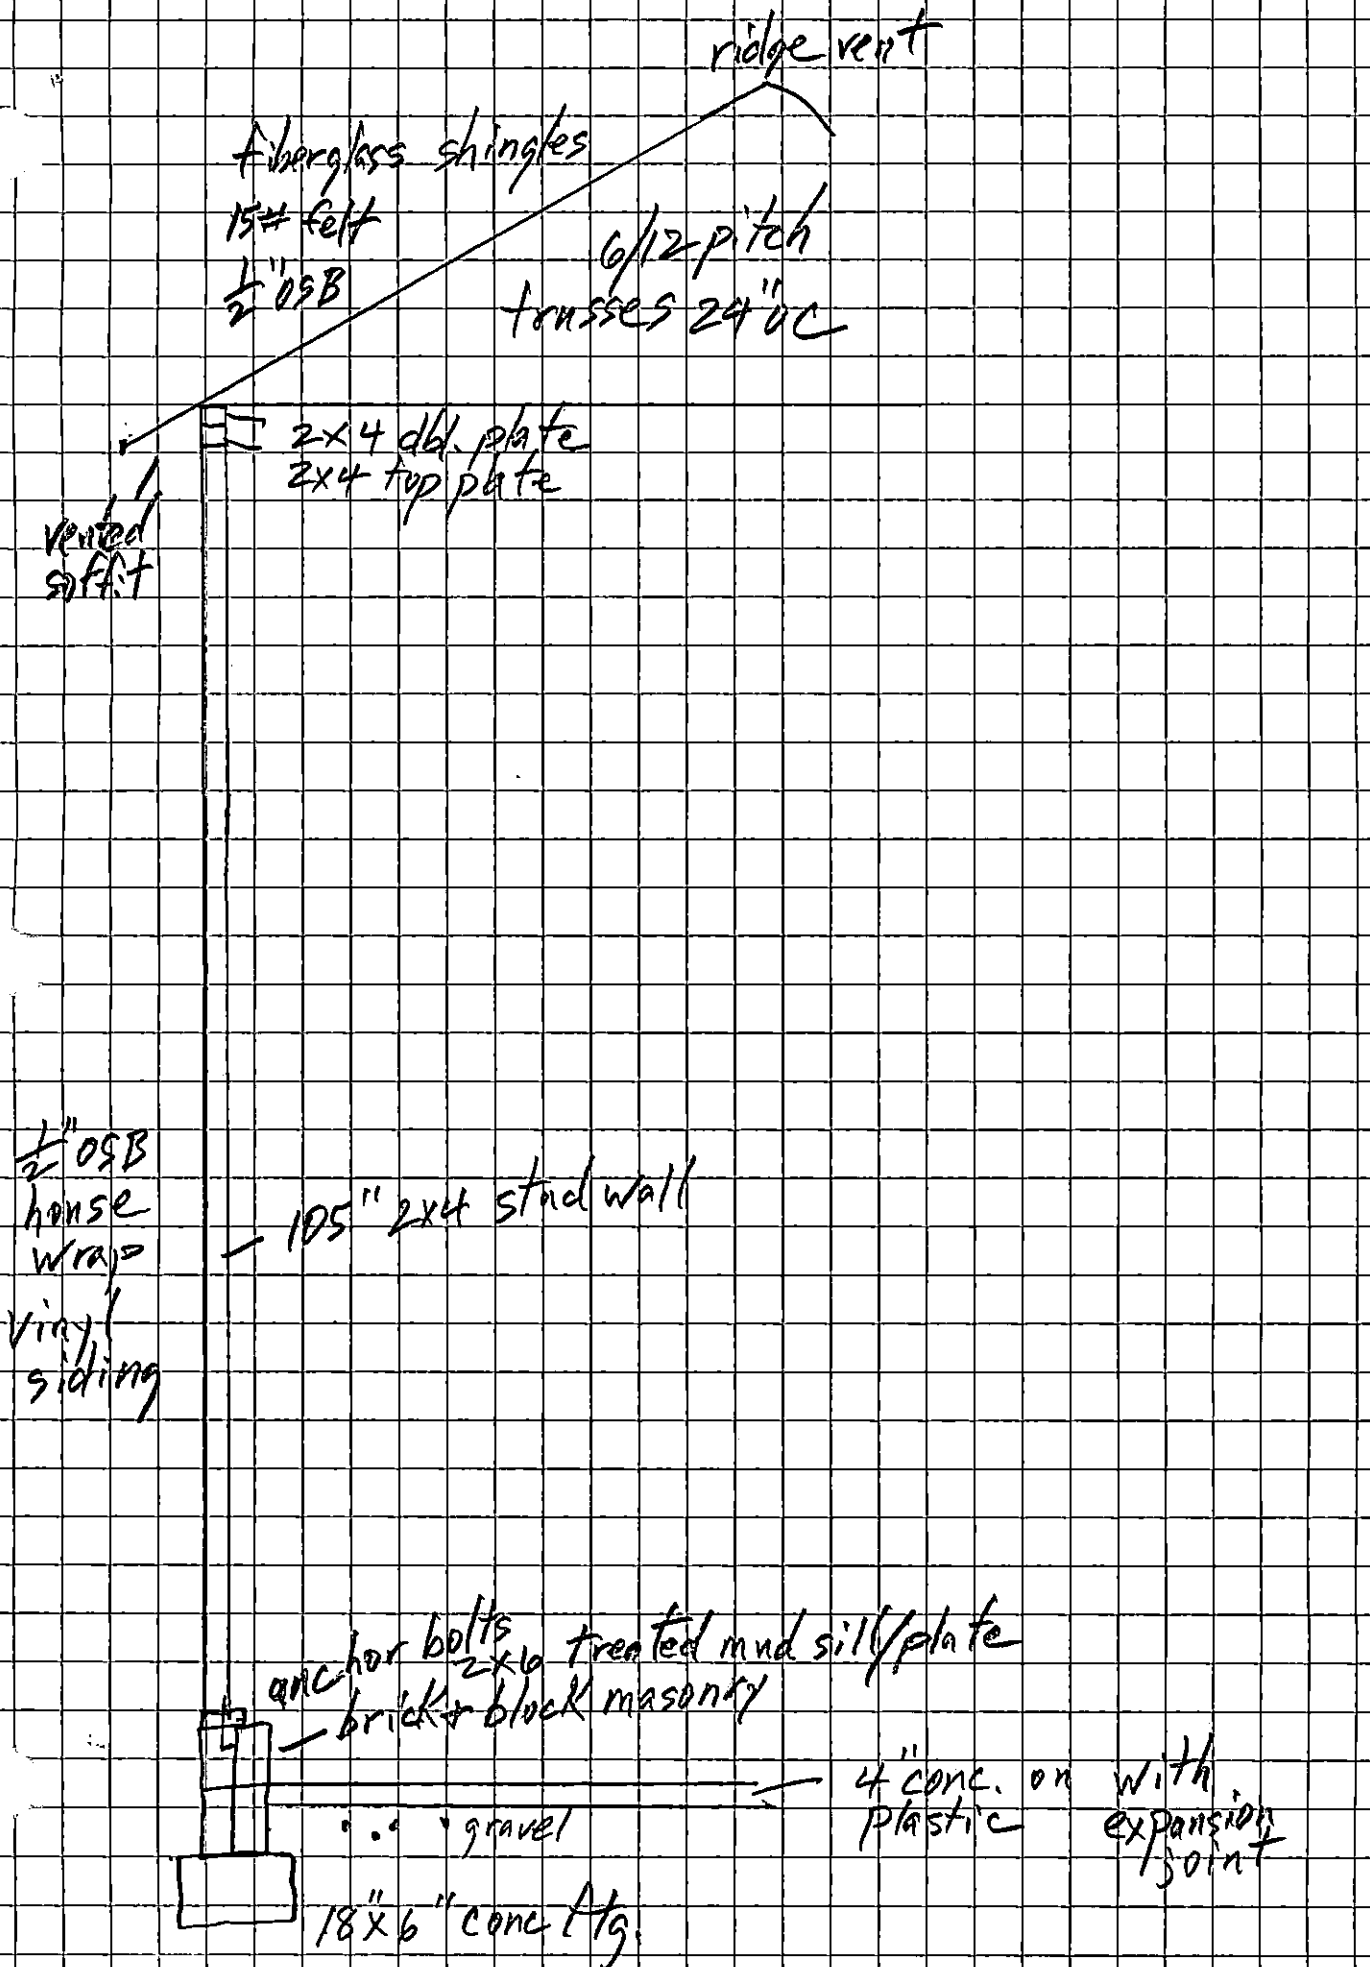 ridge vent
fiberglass shingles
15# felt
1/2" OSB
6/12 pitch
trusses 24" OC
2x4 dbl. plate
2x4 top plate
vented
soffit
1/2" OSB
house
wrap
vinyl
siding
105" 2x4 stud wall
anchor bolts
2x6 treated mud sill/plate
brick + block masonry
4" conc. on
plastic
with
expansion
joint
gravel
18" x 6" conc ftg.